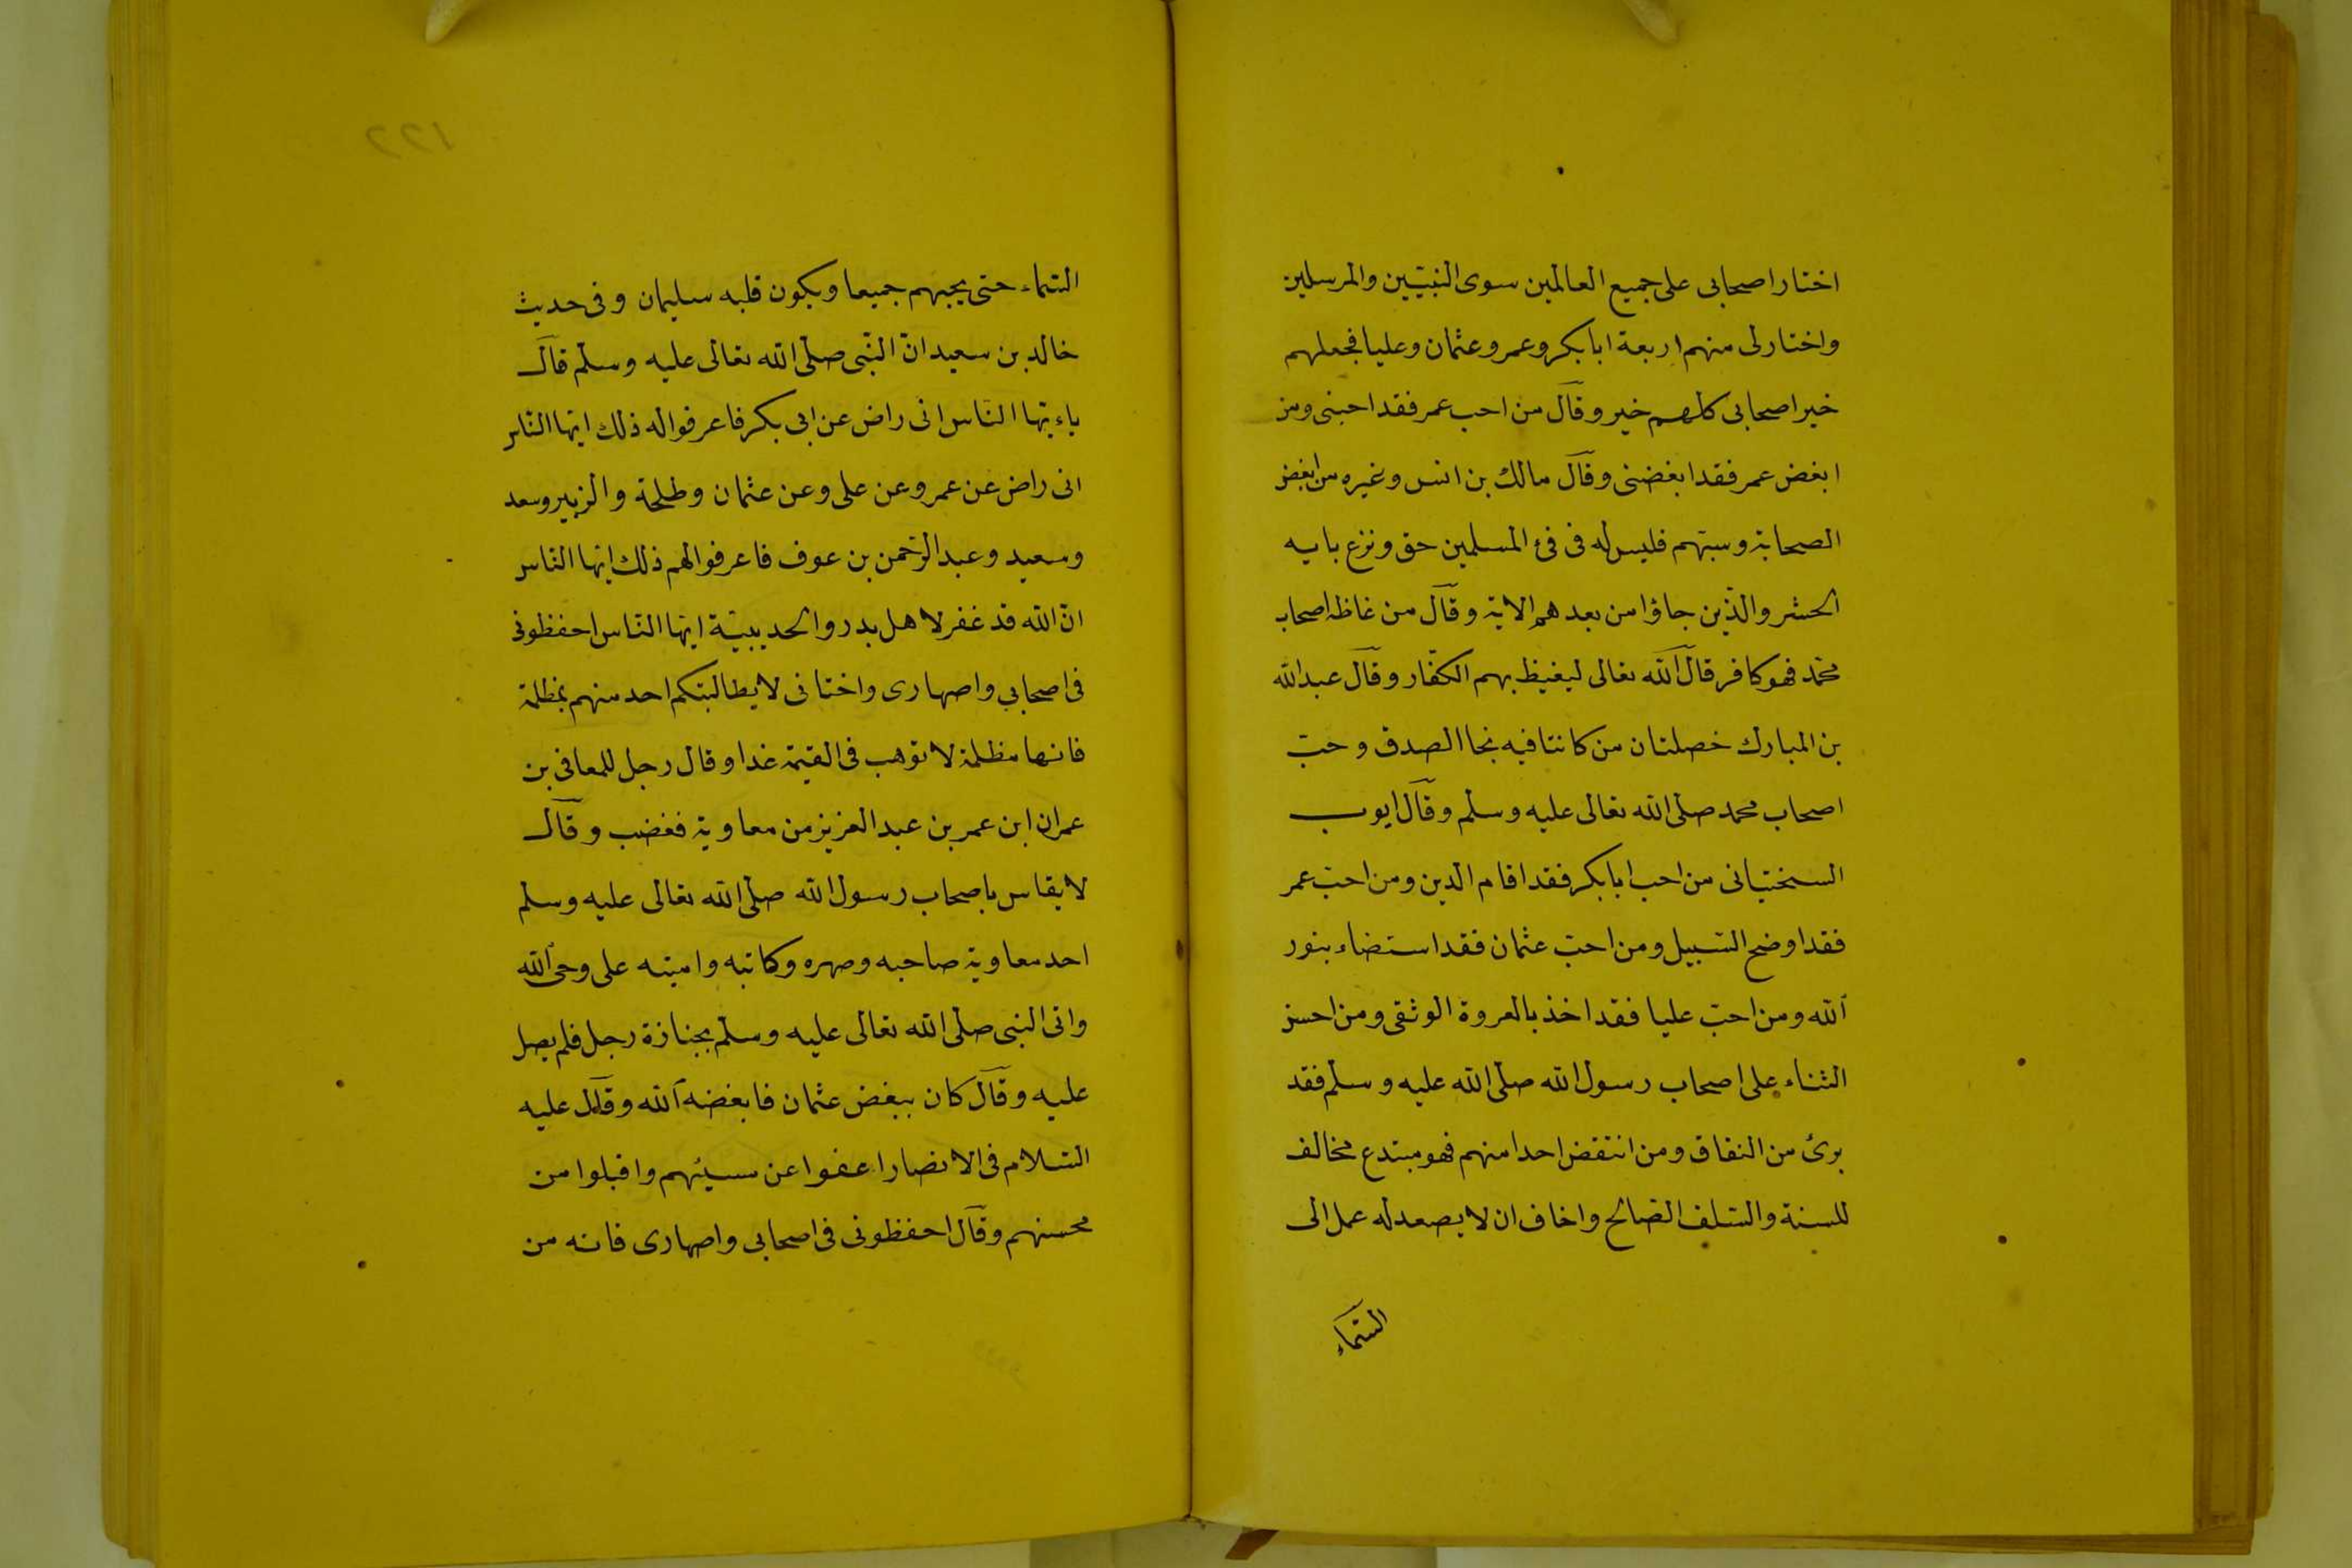 اختار اصحابى على جميع العالمين سوى النبيّين والمرسلين
واختار لى منهم اربعة ابا بكر وعمر وعثمان وعليا فجعلهم
خير اصحابى كلهم خير وقال من احب عمر فقد احبنى ومن
ابغض عمر فقد ابغضنى وقال مالك بن انس وغيره من ابغض
الصحابة وسبّهم فليس له فى فئ المسلمين حق ونزع بايه
الحشر والّذين جاؤا من بعدهم الاية وقال من غاظه اصحاب
محمّد فهو كافر قال الله تعالى ليغيظ بهم الكفّار وقال عبد الله
بن المبارك خصلتان من كانتا فيه نجا الصدق وحبّ
اصحاب محمد صلّى الله تعالى عليه وسلّم وقال ايوب
السختيانى من احب ابا بكر فقد اقام الدين ومن احبّ عمر
فقد اوضح السّبيل ومن احبّ عثمان فقد استضاء بنور
الله ومن احبّ عليا فقد اخذ بالعروة الوثقى ومن احسن
الثناء على اصحاب رسول الله صلّى الله عليه وسلّم فقد
برئ من النفاق ومن انتقض احدا منهم فهو مبتدع مخالف
للسنة والسّلف الصّالح واخاف ان لا يصعد له عمل الى
السّماء
السّماء حتى يحبهم جميعا ويكون قلبه سليمان وفى حديث
خالد بن سعيد انّ النّبى صلّى الله تعالى عليه وسلّم قال
ياء يّها النّاس انى راض عن ابى بكر فاعرفوا له ذلك ايّها النّاس
انى راض عن عمر وعن على وعن عثمان وطلحة والزبير وسعد
وسعيد وعبد الرّحمن بن عوف فاعرفوا لهم ذلك ايّها النّاس
انّ الله قد غفر لاهل بدر والحديبيّة ايّها النّاس احفظونى
فى اصحابى واصهارى واختانى لا يطالبنكم احد منهم بمظلمة
فانها مظلمة لا توهب فى القيمة غدا وقال رجل للمعافى بن
عمران ابن عمر بن عبد العزيز من معاوية فغضب وقال
لا يقاس باصحاب رسول الله صلّى الله تعالى عليه وسلم
احد معاوية صاحبه وصهره وكاتبه وامينه على وحى الله
واتى النبى صلّى الله تعالى عليه وسلّم بجنازة رجل فلم يصل
عليه وقال كان يبغض عثمان فابغضه الله وقال عليه
السّلام فى الانصار اعفوا عن مسيئهم واقبلوا من
محسنهم وقال احفظونى فى اصحابى واصهارى فانه من